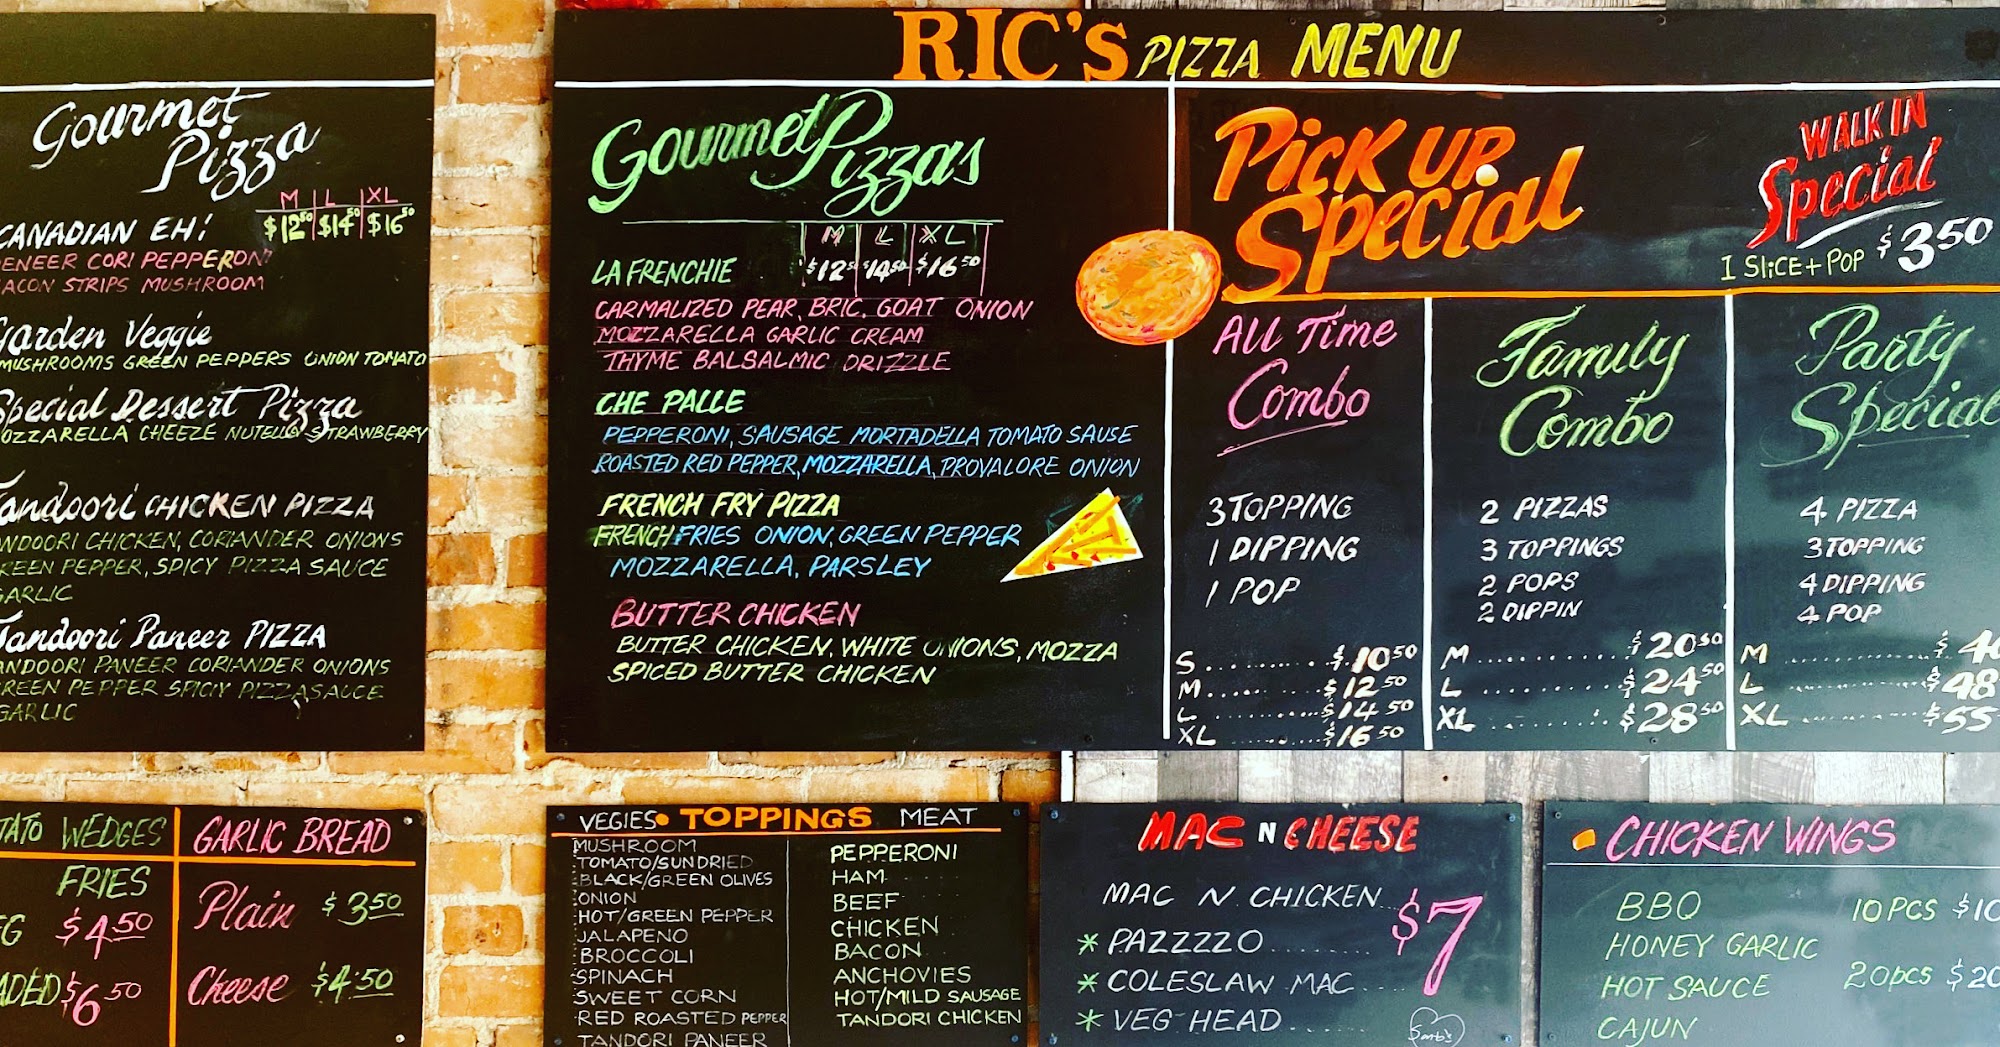 RIC'S PIZZA MENU
Gourmet
Pizza
M L XL
CANADIAN EH! $12 50 $14 50 $16 50
PENEER CORI PEPPERONI
BACON STRIPS MUSHROOM
Garden Veggie
MUSHROOMS GREEN PEPPERS ONION TOMATO
Special Dessert Pizza
MOZZARELLA CHEEZE NUTELLA STRAWBERRY
Tandoori CHICKEN PIZZA
TANDOORI CHICKEN, CORIANDER ONIONS
GREEN PEPPER, SPICY PIZZA SAUCE
GARLIC
Tandoori Paneer PIZZA
TANDOORI PANEER CORIANDER ONIONS
GREEN PEPPER SPICIY PIZZA SAUCE
GARLIC
Gourmet Pizzas
M L XL
LA FRENCHIE $12 50 $14 50 $16 50
CARMALIZED PEAR, BRIC, GOAT ONION
MOZZARELLA GARLIC CREAM
THYME BALSALMIC DRIZZLE
CHE PALLE
PEPPERONI, SAUSAGE MORTADELLA TOMATO SAUSE
ROASTED RED PEPPER, MOZZARELLA, PROVALORE ONION
FRENCH FRY PIZZA
FRENCH FRIES ONION, GREEN PEPPER
MOZZARELLA, PARSLEY
BUTTER CHICKEN
BUTTER CHICKEN, WHITE ONIONS, MOZZA
SPICED BUTTER CHICKEN
PICK UP
Special
WALK IN
Special
1 SLICE + POP $3 50
All Time
Combo
3 TOPPING
1 DIPPING
1 POP
S $10 50
M $12 50
L $14 50
XL $16 50
Family
Combo
2 PIZZAS
3 TOPPINGS
2 POPS
2 DIPPIN
M $20 50
L $24 50
XL $28 50
Party
Special
4 PIZZA
3 TOPPING
4 DIPPING
4 POP
M $40
L $48
XL $55
TATO WEDGES
FRIES
EG $4.50
ADED $6 50
GARLIC BREAD
Plain $3 50
Cheese $4.50
VEGIES • TOPPINGS MEAT
MUSHROOM
TOMATO/SUNDRIED
BLACK/GREEN OLIVES
ONION
HOT/GREEN PEPPER
JALAPENO
BROCCOLI
SPINACH
SWEET CORN
RED ROASTED PEPPER
TANDORI PANEER
PEPPERONI
HAM
BEEF
CHICKEN
BACON
ANCHOVIES
HOT/MILD SAUSAGE
TANDORI CHICKEN
MAC N CHEESE
MAC N CHICKEN
* PAZZZZO
* COLESLAW MAC
* VEG HEAD
$7
CHICKEN WINGS
BBQ
HONEY GARLIC
HOT SAUCE
CAJUN
10 PCS $10
20 pcs $20